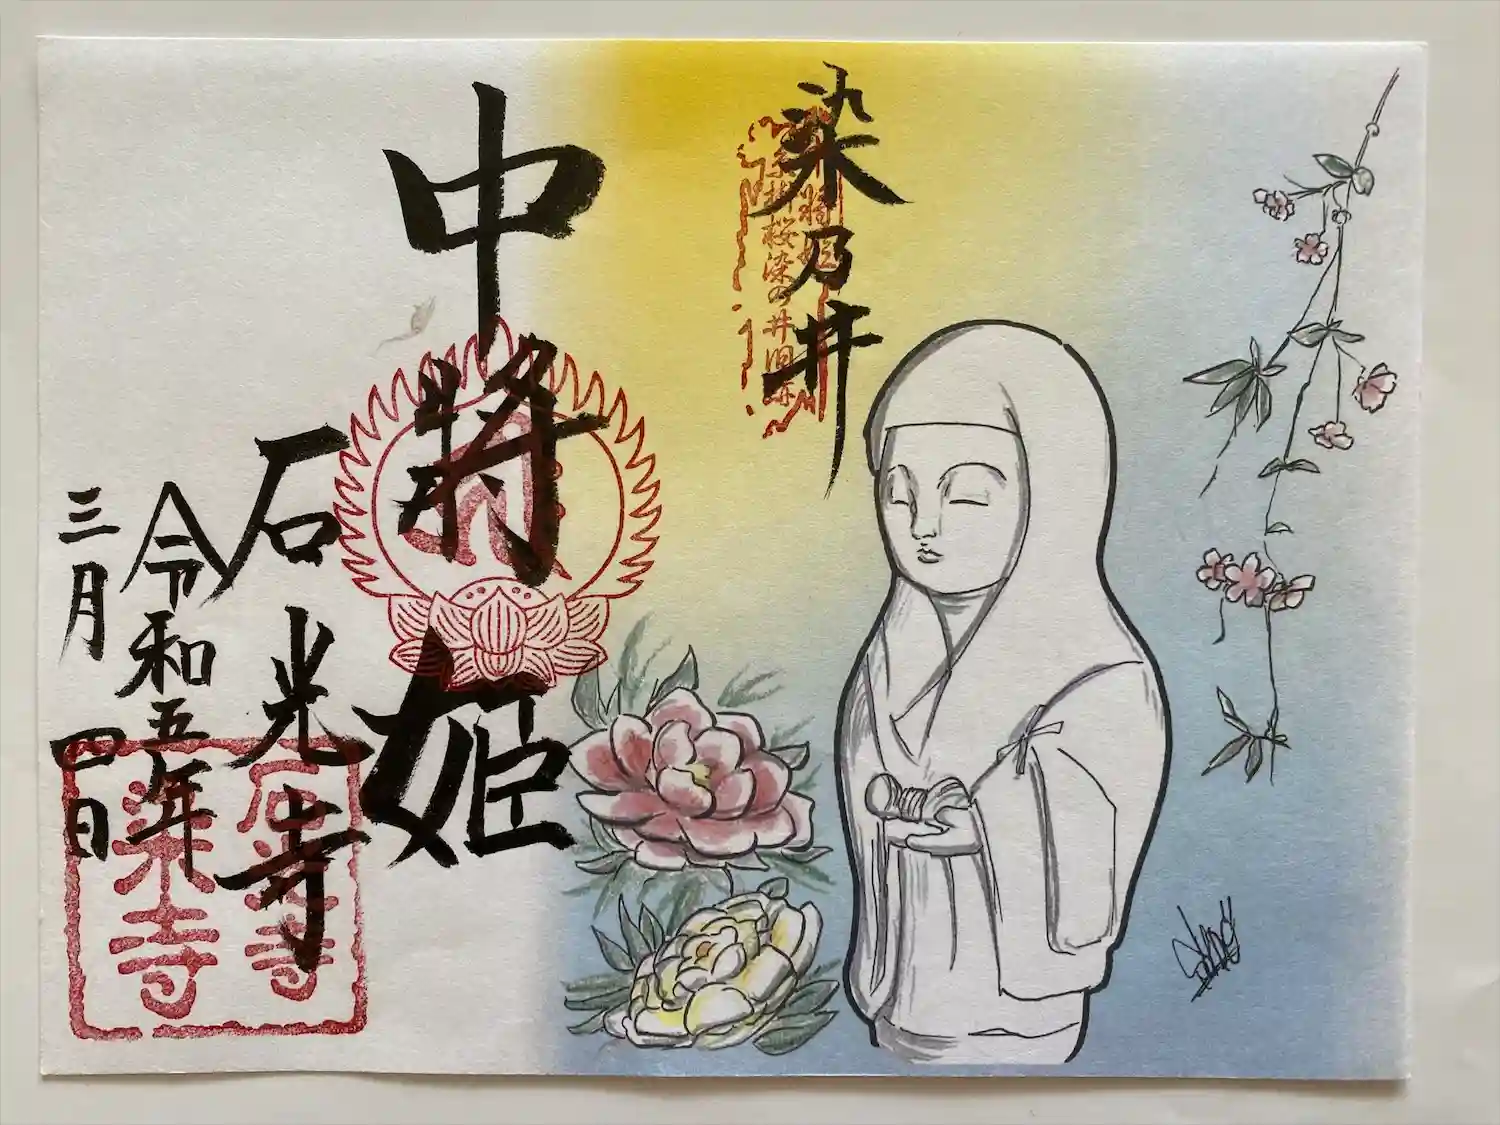 染乃井
中将姫
糸掛桜染の井旧跡
中將姫
石光寺
令和五年
三月四日
石光寺
染寺